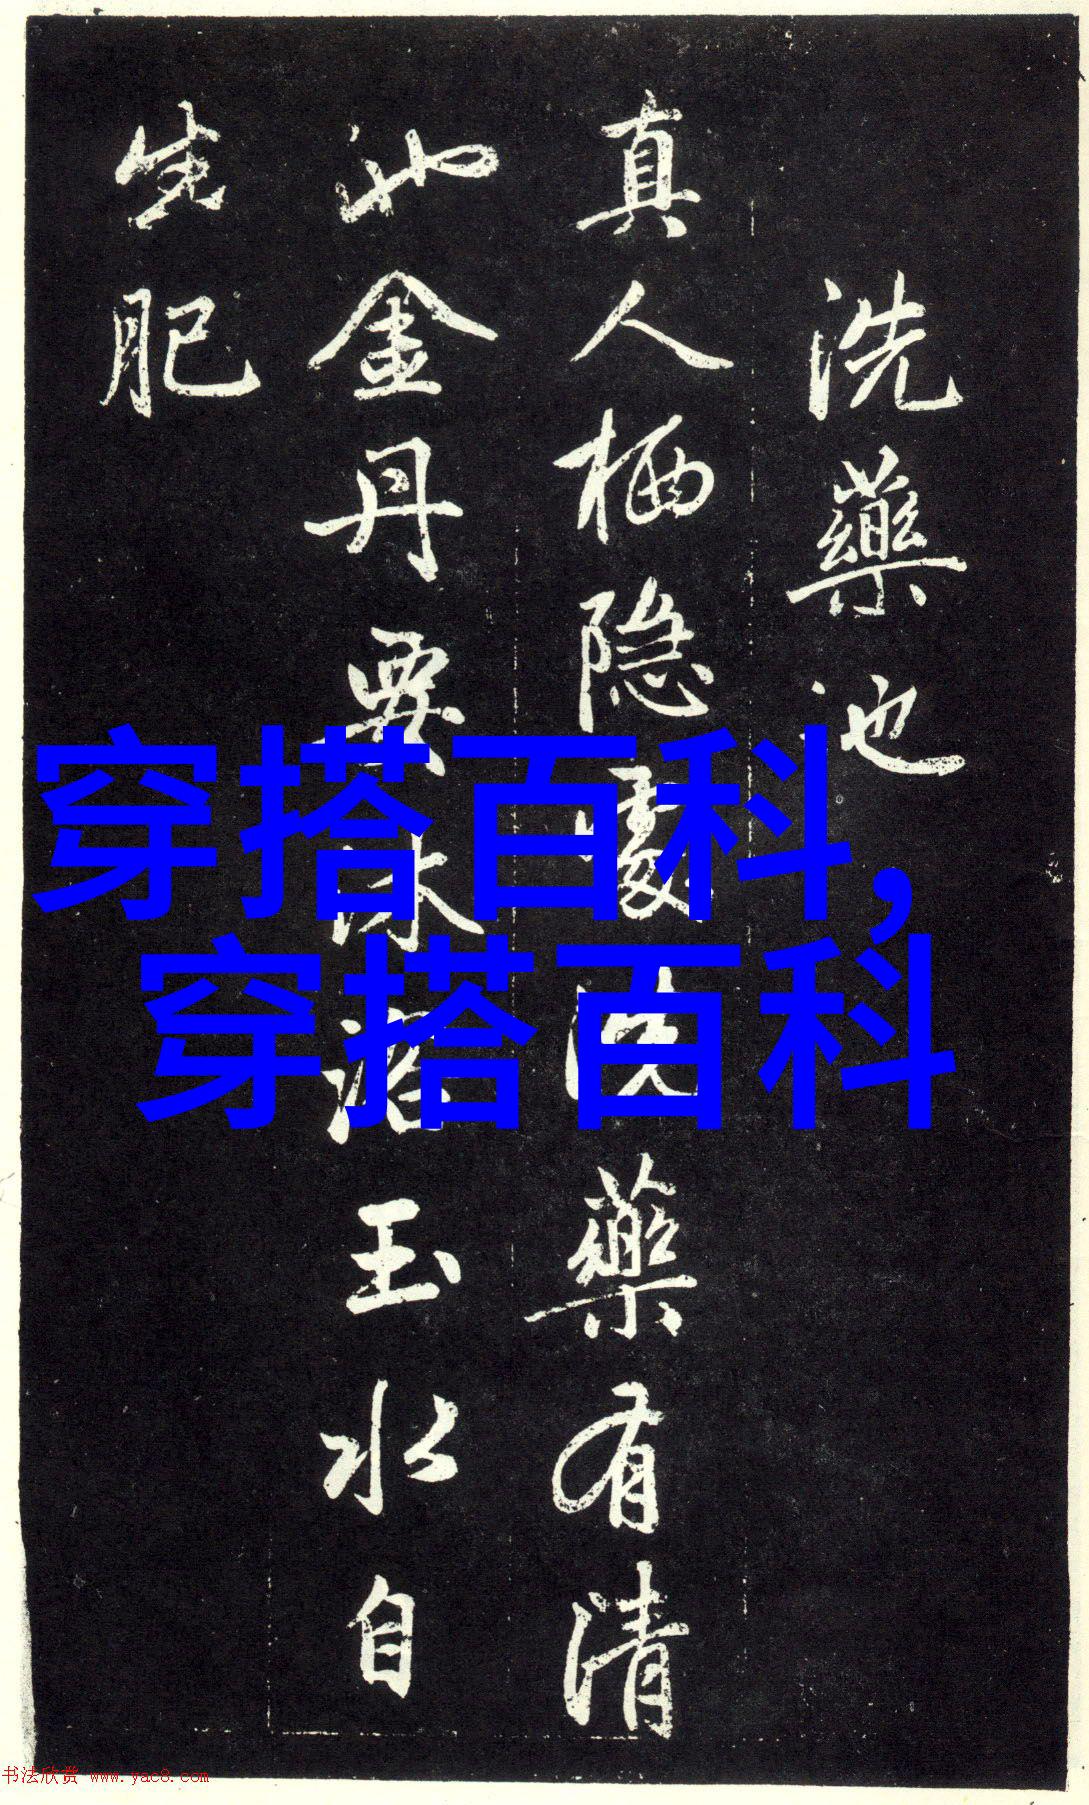 洗藥池
真人栖隐處洗藥有清
池金丹要沐浴玉水自
生肥
穿搭百科,
穿搭百科
书法欣赏 www.yac8.com